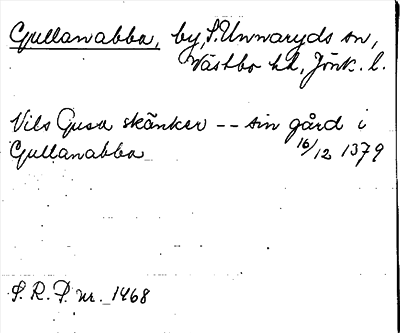 Gyllanabba, by, S. Unnaryds sn,
Västbo hd, Jönk. l.
Nils Gusa skänker -- sin gård i
Gyllanabba 16/12 1379
S. R. P. nr. 1468